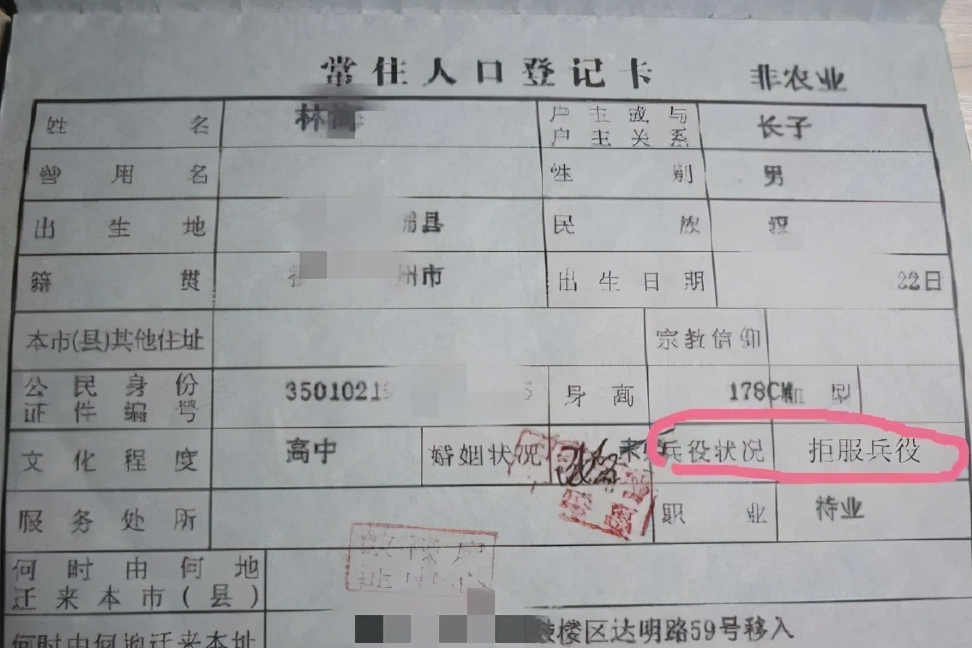 常住人口登记卡 非农业
姓名 林 户主或与户主关系 长子
曾用名 性别 男
出生地 县 民族
籍贯 州市 出生日期 22日
本市(县)其他住址 宗教信仰
公民身份证件编号 35010219 5 身高 178CM 血型
文化程度 高中 婚姻状况 未 兵役状况 拒服兵役
服务处所 职业 待业
何时由何地迁来本市(县)
何时由何地迁来本址 鼓楼区达明路59号移入